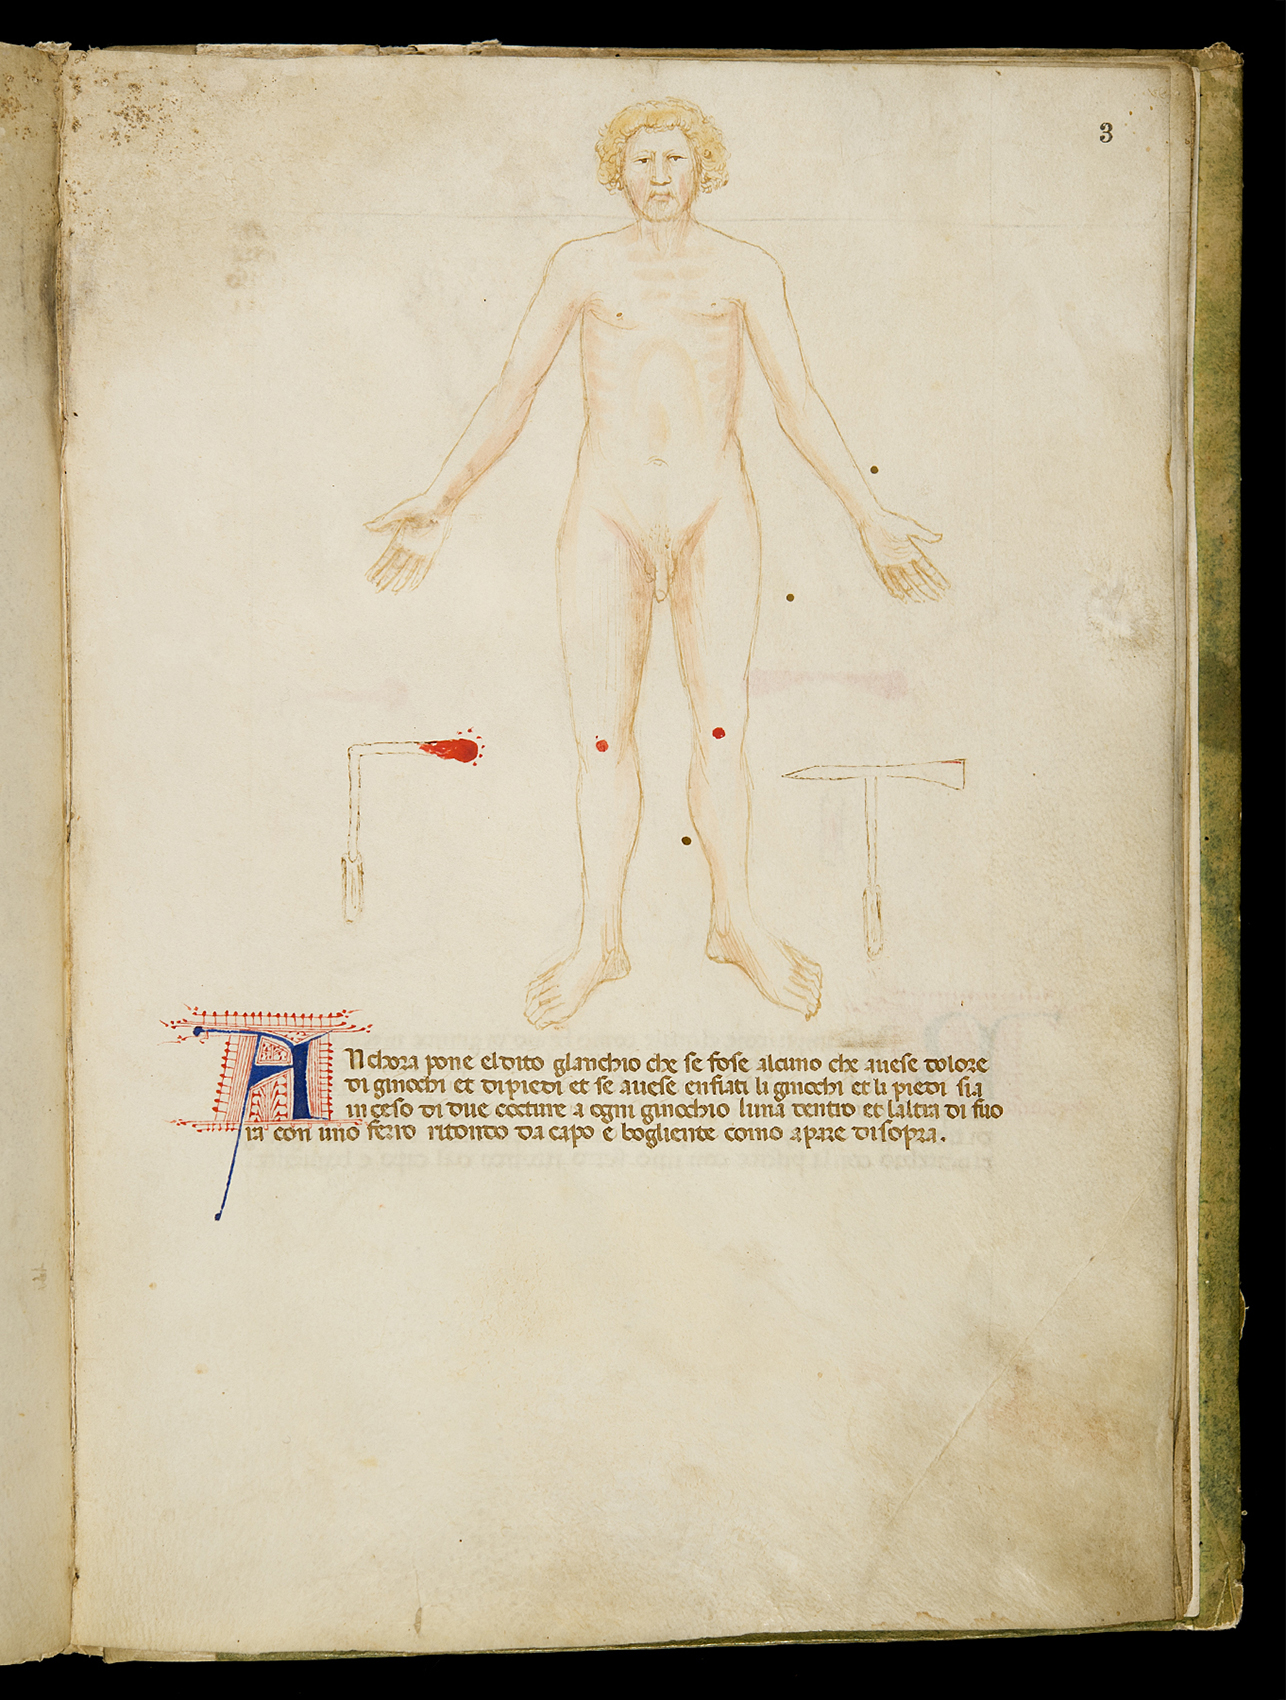 3
Anchora pone el dito glanchio che se fose alcuno che auese dolore
di ginochi et di piedi et se auese enfiati li ginochi et li piedi sia
inceso di due cocture a ogni ginochio luna dentro et laltra di fuo
ra con uno ferro ritondo da capo e bogliente como apare disopra.